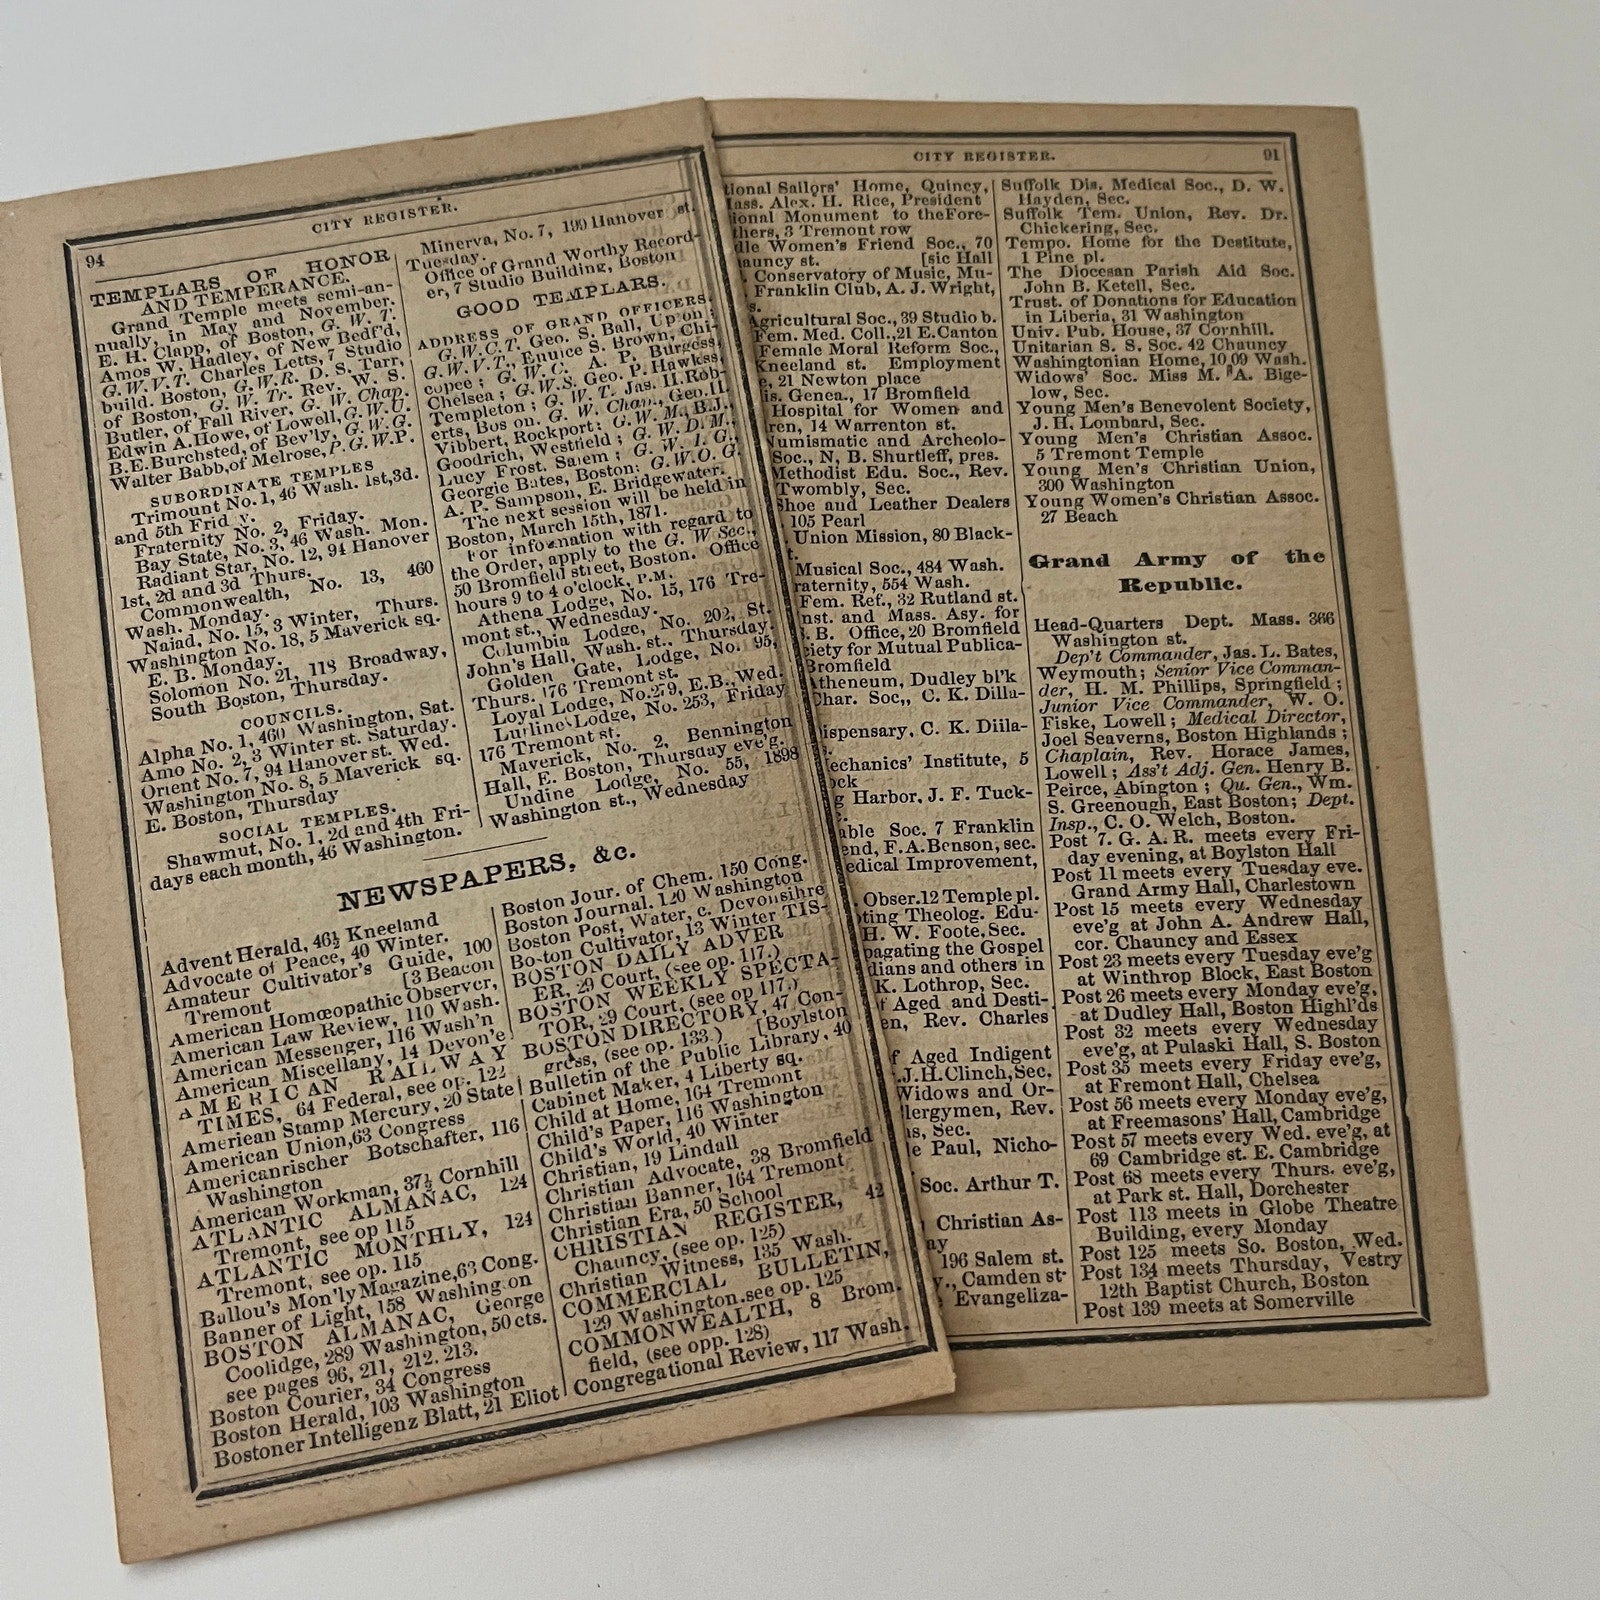 CITY REGISTER.
94
TEMPLARS OF HONOR
AND TEMPERANCE.
Grand Temple meets semi-an-
nually, in May and November.
E. H. Clapp, of Boston, G. W. T.
Amos W. Hadley, of New Bedf'd,
G.W.V.T. Charles Letts, 7 Studio
build. Boston, G.W.R. D. S. Tarr,
of Boston, G. W. Tr. Rev. W. S.
Butler, of Fall River, G. W. Chap.
Edwin A. Howe, of Lowell, G.W.U.
B.E. Burchsted, of Bev'ly, G.W.G.
Walter Babb, of Melrose, P.G.W.P.
SUBORDINATE TEMPLES
Trimount No. 1, 46 Wash. 1st, 3d.
and 5th Frid y.
Fraternity No. 2, Friday.
Bay State, No. 3, 46 Wash. Mon.
Radiant Star, No. 12, 94 Hanover
1st, 2d and 3d Thurs.
Commonwealth, No. 13, 460
Wash. Monday.
Naiad, No. 15, 3 Winter, Thurs.
Washington No. 18, 5 Maverick sq.
E. B. Monday.
Solomon No. 21, 118 Broadway,
South Boston, Thursday.
COUNCILS.
Alpha No. 1, 460 Washington, Sat.
Amo No. 2, 3 Winter st. Saturday.
Orient No. 7, 94 Hanover st. Wed.
Washington No. 8, 5 Maverick sq.
E. Boston, Thursday
SOCIAL TEMPLES.
Shawmut, No. 1, 2d and 4th Fri-
days each month, 46 Washington.
Minerva, No. 7, 199 Hanover st.
Tuesday.
Office of Grand Worthy Record-
er, 7 Studio Building, Boston
GOOD TEMPLARS.
ADDRESS OF GRAND OFFICERS.
G.W.C.T. Geo. S. Ball, Upton;
G.W.V.T., Eunice S. Brown, Chi-
copee; G.W.C. A. P. Burgess,
Chelsea; G.W.S. Geo. P. Hawkes,
Templeton; G. W. T. Jas. H. Rob-
erts, Bos on. G. W. Chap., Geo. H.
Vibbert, Rockport; G. W. M., B.J.,
Goodrich, Westfield; G. W. D. M.,
Lucy Frost, Salem; G. W. I. G.,
Georgie Bates, Boston; G.W.O. G.
A. P. Sampson, E. Bridgewater.
The next session will be held in
Boston, March 15th, 1871.
For information with regard to
the Order, apply to the G. W Sec.,
50 Bromfield street, Boston. Office
hours 9 to 4 o'clock, P.M.
Athena Lodge, No. 15, 176 Tre-
mont st., Wednesday.
Columbia Lodge, No. 202, St.
John's Hall, Wash. st., Thursday.
Golden Gate, Lodge, No. 95,
Thurs. 176 Tremont st.
Loyal Lodge, No. 279, E.B., Wed.
Lurline Lodge, No. 253, Friday
176 Tremont st.
Maverick, No. 2, Bennington
Hall, E. Boston, Thursday eve'g.
Undine Lodge, No. 55, 1898
Washington st., Wednesday
NEWSPAPERS, &c.
Advent Herald, 46½ Kneeland
Advocate of Peace, 40 Winter.
Amateur Cultivator's Guide, 100
Tremont [3 Beacon
American Homœopathic Observer,
American Law Review, 110 Wash.
American Messenger, 116 Wash'n
American Miscellany, 14 Devon'e
AMERICAN RAILWAY
TIMES, 64 Federal, see op. 122
American Stamp Mercury, 20 State
American Union, 63 Congress
Americanrischer Botschafter, 116
Washington
American Workman, 37½ Cornhill
ATLANTIC ALMANAC, 124
Tremont, see op 115
ATLANTIC MONTHLY, 124
Tremont, see op. 115
Ballou's Mon'ly Magazine, 63 Cong.
Banner of Light, 158 Washing on
BOSTON ALMANAC, George
Coolidge, 289 Washington, 50 cts.
see pages 96, 211, 212, 213.
Boston Courier, 34 Congress
Boston Herald, 103 Washington
Bostoner Intelligenz Blatt, 21 Eliot
Boston Jour. of Chem. 150 Cong.
Boston Journal. 120 Washington
Boston Post, Water, c. Devonsihre
Boston Cultivator, 13 Winter
BOSTON DAILY ADVERTIS-
ER, 29 Court, (see op. 117.)
BOSTON WEEKLY SPECTA-
TOR, 29 Court, (see op 117.)
BOSTON DIRECTORY, 47 Con-
gress, (see op. 133.) [Boylston
Bulletin of the Public Library, 40
Cabinet Maker, 4 Liberty sq.
Child at Home, 164 Tremont
Child's Paper, 116 Washington
Child's World, 40 Winter
Christian, 19 Lindall
Christian Advocate, 38 Bromfield
Christian Banner, 164 Tremont
Christian Era, 50 School
CHRISTIAN REGISTER, 42
Chauncy, (see op. 125)
Christian Witness, 135 Wash.
COMMERCIAL BULLETIN,
129 Washington. see op. 125
COMMONWEALTH, 8 Brom-
field, (see opp. 128)
Congregational Review, 117 Wash.
CITY REGISTER.
91
tional Sailors' Home, Quincy,
Mass. Alex. H. Rice, President
ional Monument to the Fore-
thers, 3 Tremont row
dle Women's Friend Soc., 70
auncy st. [sic Hall
Conservatory of Music, Mu-
Franklin Club, A. J. Wright,
s.
Agricultural Soc., 39 Studio b.
Fem. Med. Coll., 21 E. Canton
Female Moral Reform Soc.,
Kneeland st. Employment
e, 21 Newton place
is. Genea., 17 Bromfield
Hospital for Women and
ren, 14 Warrenton st.
Numismatic and Archeolo-
Soc., N. B. Shurtleff, pres.
Methodist Edu. Soc., Rev.
Twombly, Sec.
Shoe and Leather Dealers
105 Pearl
Union Mission, 80 Black-
t.
Musical Soc., 484 Wash.
raternity, 554 Wash.
Fem. Ref., 32 Rutland st.
nst. and Mass. Asy. for
B. Office, 20 Bromfield
iety for Mutual Publica-
Bromfield
theneum, Dudley bl'k
Char. Soc,, C. K. Dilla-
ispensary, C. K. Diila-
echanics' Institute, 5
ock
g Harbor, J. F. Tuck-
able Soc. 7 Franklin
end, F.A. Benson, sec.
edical Improvement,
Obser. 12 Temple pl.
oting Theolog. Edu-
H. W. Foote, Sec.
pagating the Gospel
dians and others in
K. Lothrop, Sec.
f Aged and Desti-
en, Rev. Charles
f Aged Indigent
J.H. Clinch, Sec.
Widows and Or-
lergymen, Rev.
is, Sec.
e Paul, Nicho-
Soc. Arthur T.
Christian As-
ay
196 Salem st.
Y., Camden st
Evangeliza-
Suffolk Dis. Medical Soc., D. W.
Hayden, Sec.
Suffolk Tem. Union, Rev. Dr.
Chickering, Sec.
Tempo. Home for the Destitute,
1 Pine pl.
The Diocesan Parish Aid Soc.
John B. Ketell, Sec.
Trust. of Donations for Education
in Liberia, 31 Washington
Univ. Pub. House, 37 Cornhill.
Unitarian S. S. Soc. 42 Chauncy
Washingtonian Home, 10,09 Wash.
Widows' Soc. Miss M. A. Bige-
low, Sec.
Young Men's Benevolent Society,
J. H. Lombard, Sec.
Young Men's Christian Assoc.
5 Tremont Temple
Young Men's Christian Union,
300 Washington
Young Women's Christian Assoc.
27 Beach
Grand Army of the
Republic.
Head-Quarters Dept. Mass. 366
Washington st.
Dep't Commander, Jas. L. Bates,
Weymouth; Senior Vice Comman-
der, H. M. Phillips, Springfield;
Junior Vice Commander, W. O.
Fiske, Lowell; Medical Director,
Joel Seaverns, Boston Highlands;
Chaplain, Rev. Horace James,
Lowell; Ass't Adj. Gen. Henry B.
Peirce, Abington; Qu. Gen., Wm.
S. Greenough, East Boston; Dept.
Insp., C. O. Welch, Boston.
Post 7. G. A. R. meets every Fri-
day evening, at Boylston Hall
Post 11 meets every Tuesday eve.
Grand Army Hall, Charlestown
Post 15 meets every Wednesday
eve'g at John A. Andrew Hall,
cor. Chauncy and Essex
Post 23 meets every Tuesday eve'g
at Winthrop Block, East Boston
Post 26 meets every Monday eve'g,
at Dudley Hall, Boston Highl'ds
Post 32 meets every Wednesday
eve'g, at Pulaski Hall, S. Boston
Post 35 meets every Friday eve'g,
at Fremont Hall, Chelsea
Post 56 meets every Monday eve'g,
at Freemasons' Hall, Cambridge
Post 57 meets every Wed. eve'g, at
69 Cambridge st. E. Cambridge
Post 68 meets every Thurs. eve'g,
at Park st. Hall, Dorchester
Post 113 meets in Globe Theatre
Building, every Monday
Post 125 meets So. Boston, Wed.
Post 134 meets Thursday, Vestry
12th Baptist Church, Boston
Post 139 meets at Somerville